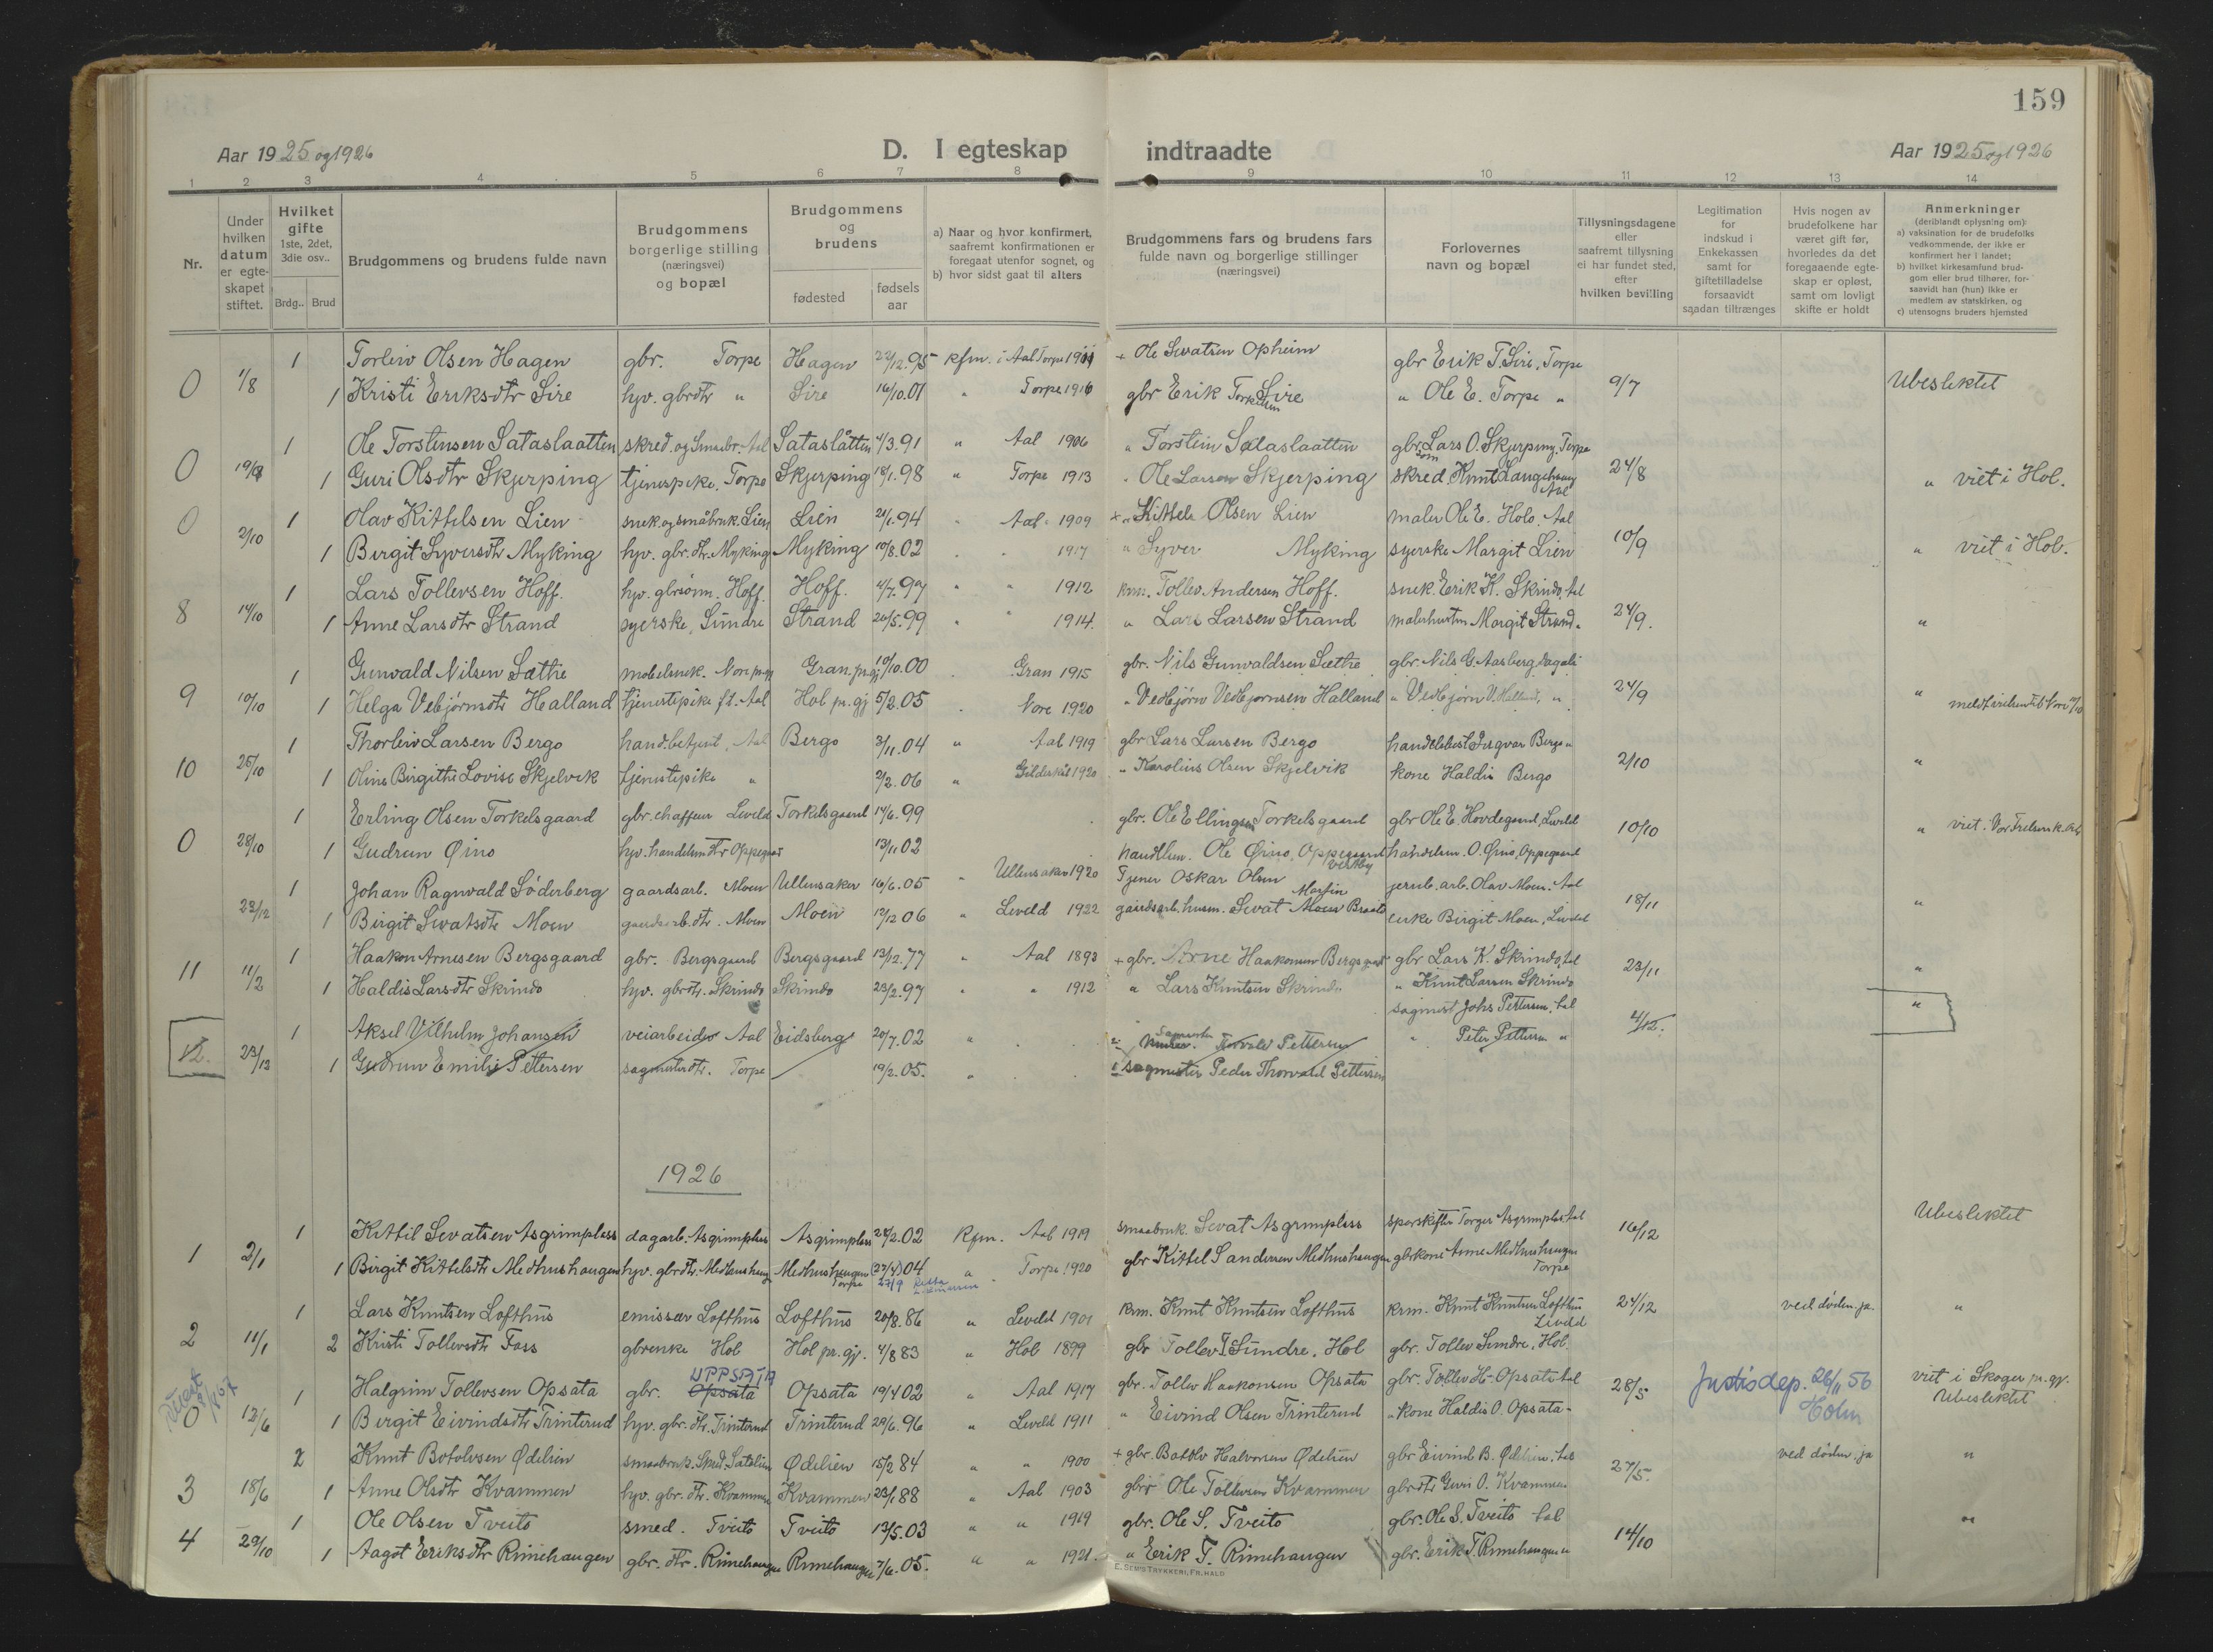 159
Aar 1925 og 1926 D. I egteskap indtraadte Aar 1925 og 1926
1 2 3 4 5 6 7 8 9 10 11 12 13 14
Nr.
Under hvilken datum er egteskapet stiftet.
Hvilket gifte 1ste, 2det, 3die osv..
Brdg.. Brud
Brudgommens og brudens fulde navn
Brudgommens borgerlige stilling (næringsvei) og bopæl
Brudgommens og brudens
fødested
fødsels aar
a) Naar og hvor konfirmert, saafremt konfirmationen er foregaat utenfor sognet, og
b) hvor sidst gaat til alters
Brudgommens fars og brudens fars fulde navn og borgerlige stillinger (næringsvei)
Forlovernes navn og bopæl
Tillysningsdagene eller saafremt tillysning ei har fundet sted, efter hvilken bevilling
Legitimation for indskud i Enkekassen samt for giftetilladelse forsaavidt saadan tiltrænges
Hvis nogen av brudefolkene har været gift før, hvorledes da det foregaaende egteskap er opløst, samt om lovligt skifte er holdt
Anmerkninger
(deriblandt oplysning om)
a) vaksination for de brudefolks vedkommende, der ikke er konfirmert her i landet;
b) hvilket kirkesamfund brudgom eller brud tilhører, forsaavidt han (hun) ikke er medlem av statskirken, og
c) utensogns bruders hjemsted
1 Torleiv Olsen Hagen gbr. Torpe Hagen 22/12.95 Kfm. i Aal Torpe 1911 + Ole Svatsen Opheim gbr Erik T. Sire, Torpe
0 1/8 1 Kristi Eriksdtr Sire hjv. gbrdtr " Sire 16/10.01 " Torpe 1916 gbr Erik Torkelsen Sire " Ole E. Torpe " 9/7 Ubeslektet
1 Ole Torstensen Sataslaatten skred. og Smaabr. Aal Sataslåtten 4/3.91 " Aal 1906 " Torstein Sataslaatten gbr. Lars O. Skjerping, Torpe
0 19/8 1 Guri Olsdtr Skjerping tjenerpike. Torpe Skjerping 18/1.98 " Torpe 1913 " Ole Larsen Skjerping skred. Knut Langehaug Aal 24/8 " viet i Hol.
0 1 Olav Kittilsen Lien snek. og småbruk. Lien Lien 20/1.94 " Aal 1909 + " Kittel Olsen Lien maler Ole E. Holo. Aal
2/10 1 Birgit Syversdtr Myking hjv. gbr. dtr. Myking Myking 10/8.02 " " 1917 " Syver Myking syerske Margit Lien 10/9 " viet i Hol.
1 Lars Tollevsen Hoff. hjv. gbrsønn. Hoff. Hoff. 4/7.97 " " 1912 krm. Tollev Andersen Hoff. snek. Erik K. Skindo, Aal
8 14/10 1 Anne Larsdtr Strand syerske, Sundre Strand 20/5.99 " " 1914. " Lars Larsen Strand malerhustru Margit Strand " 24/9. "
1 Gunvald Nilsen Sæthe møbelsnek. Nore prgj Gran. prgj 10/10.00 " Gran 1915 gbr. Nils Gunvaldsen Sæthe gbr. Nils G. Aasberg, Dagali
9 10/10 1 Helga Vebjørnsdtr Halland tjenestepike f.t. Aal Hol pr.gj 5/2.05 " Nore 1920 " Vedbjørn Vedbjørnsen Halland " Vedbjørn V. Halland, " 24/9 "
1 Thorleiv Larsen Bergo hand.betjent, Aal Bergo 3/11.04 " Aal 1919 gbr Lars Larsen Bergo handelsbest. Ingvar Bergo "
10 25/10 1 Oline Birgitthe Lovise Skjelvik tjenestepike " 2/2.06 " Gildeskål 1920 " Karolius Olsen Skjelvik kone Haldis Bergo 2/10 "
1 Erling Olsen Torkelsgaard gbr. chaffeur Leveld Torkelsgaard 14/6.99 gbr. Ole Ellingsen Torkelsgaard gbr Ole E. Hovdegaard, Leveld
0 28/10 1 Gudrun Øino hjv. handelsm. dtr Oppegaard 13/11 02 handlsm. Ole Øino, Oppegaard Vestby handelsm. O. Øino, Oppegaard 10/10 " viet i Vor Frelsersk. Oslo
1 Johan Ragnvald Söderberg gaardsarb. Moen Ullensaker 16/6.05 " Ullensaker 1920 Tjener Oskar Olsen jernb. arb. Olav Moen. Aal
23/12 1 Birgit Sevatsdtr Moen gaardsarb. dtr. Moen Moen 12/12 06 " Leveld 1922 gaardsarb. husm. Sevat Martin Moen Braate enke Birgit Moen, Leveld 18/11 "
1 Haakon Arnesen Bergsgaard gbr. Bergsgaard Bergsgaard 13/12.77 " Aal 1893 + gbr. Arne Haakonsen Bergsgaard gbr Lars K. Skrindo, Aal
11 11/2 1 Haldis Larsdtr Skrindo hjv. gbrdtr. Skrindo Skrindo 23/2.97 " " 1912 " Lars Knutsen Skrindo " Knut Larsen Skrindo 23/11 "
1 Aksel Vilhelm Johansen veiarbeider Aal Eidsberg 20/7.02 " sagmest Johs Pettersen, Aal 4/12. "
12. 23/12 1 Gudrun Emilie Pettersen sagmesterdtr. Torpe 19/2.05. " sagmester Peder Thorvald Pettersen " Peter Pettersen "
1926
1 Kittil Sevatsen Asgrimplass dagarb. Asgrimplass Asgrimplass 28/2.02 Kfm. Aal 1919 smaabruk. Sevat Asgrimplass sporskifter Torger Asgrimplas Aal Ubeslektet
1 2/1 1 Birgit Kittelsdtr Medhushaugen hjv. gbrdtr. Medhushaug Medhushaugen Torpe (27/4) 04 27/9 " Torpe 1920 gbr Kittel Sandersen Medhushaugen gbrkone Anne Medhushaugen Torpe 16/12
1 Lars Knutsen Lofthus emissær Lofthus Lofthus 20/8.86 " Leveld 1901 krm. Knut Knutsen Lofthus krm. Knut Knutsen Lofthus Leveld 24/12 ved døden. ja. "
2 11/1 2 Kristi Tollevsdtr Foss gbrenke Hol Hol pr. gj. 4/8 83 " Hol 1899 gbr Tollev T. Sundre, Hol gbr. Tollev Sundre, Hol.
1 Halgrim Tollevsen Opsata gbr. Opsata UPPSATA Opsata 19/4 02 " Aal 1917 gbr. Tollev Haakonsen Opsata gbr. Tollev H. Opsata Aal 28/5 Justisdep. 26/11 56 Holm viet i Skoger pr. gj. Ubeslektet
0 12/6 1 Birgit Eivindsdtr Trinterud hjv. gbr. dtr. Trinterud Trinterud 29/6.96 " Leveld 1911 " Eivind Olsen Trinterud " kone Haldis O. Opsata "
2 Knut Botolvsen Ødelien smaabruk. Smed. Satelien Ødelien 15/2 84 " " 1900 + gbr. Botolv Halvorsen Ødelien gbr Eivind B. Ødelien, Aal ved døden. ja "
3 18/6 1 Anne Olsdtr Kvammen hjv. gbr. dtr. Kvammen Kvammen 23/1 88 " Aal 1903 gbr Ole Tollevsen Kvammen gbrdtr Guri O. Kvammen 27/5.
1 Ole Olsen Tveito smed. Tveito Tveito 13/5.03 " " 1919 gbr. Ole S. Tveito gbr. Ole S. Tveito Aal "
4 29/10 1 Aagot Eriksdtr Rimehaugen gbr. dtr. Rimehaugen Rimehaugen 7/6.05. " " 1921. " Erik T. Rimehaugen gbr. Erik T. Rimehaugen " 14/10
E. SEM'S TRYKKERI, FR.HALD